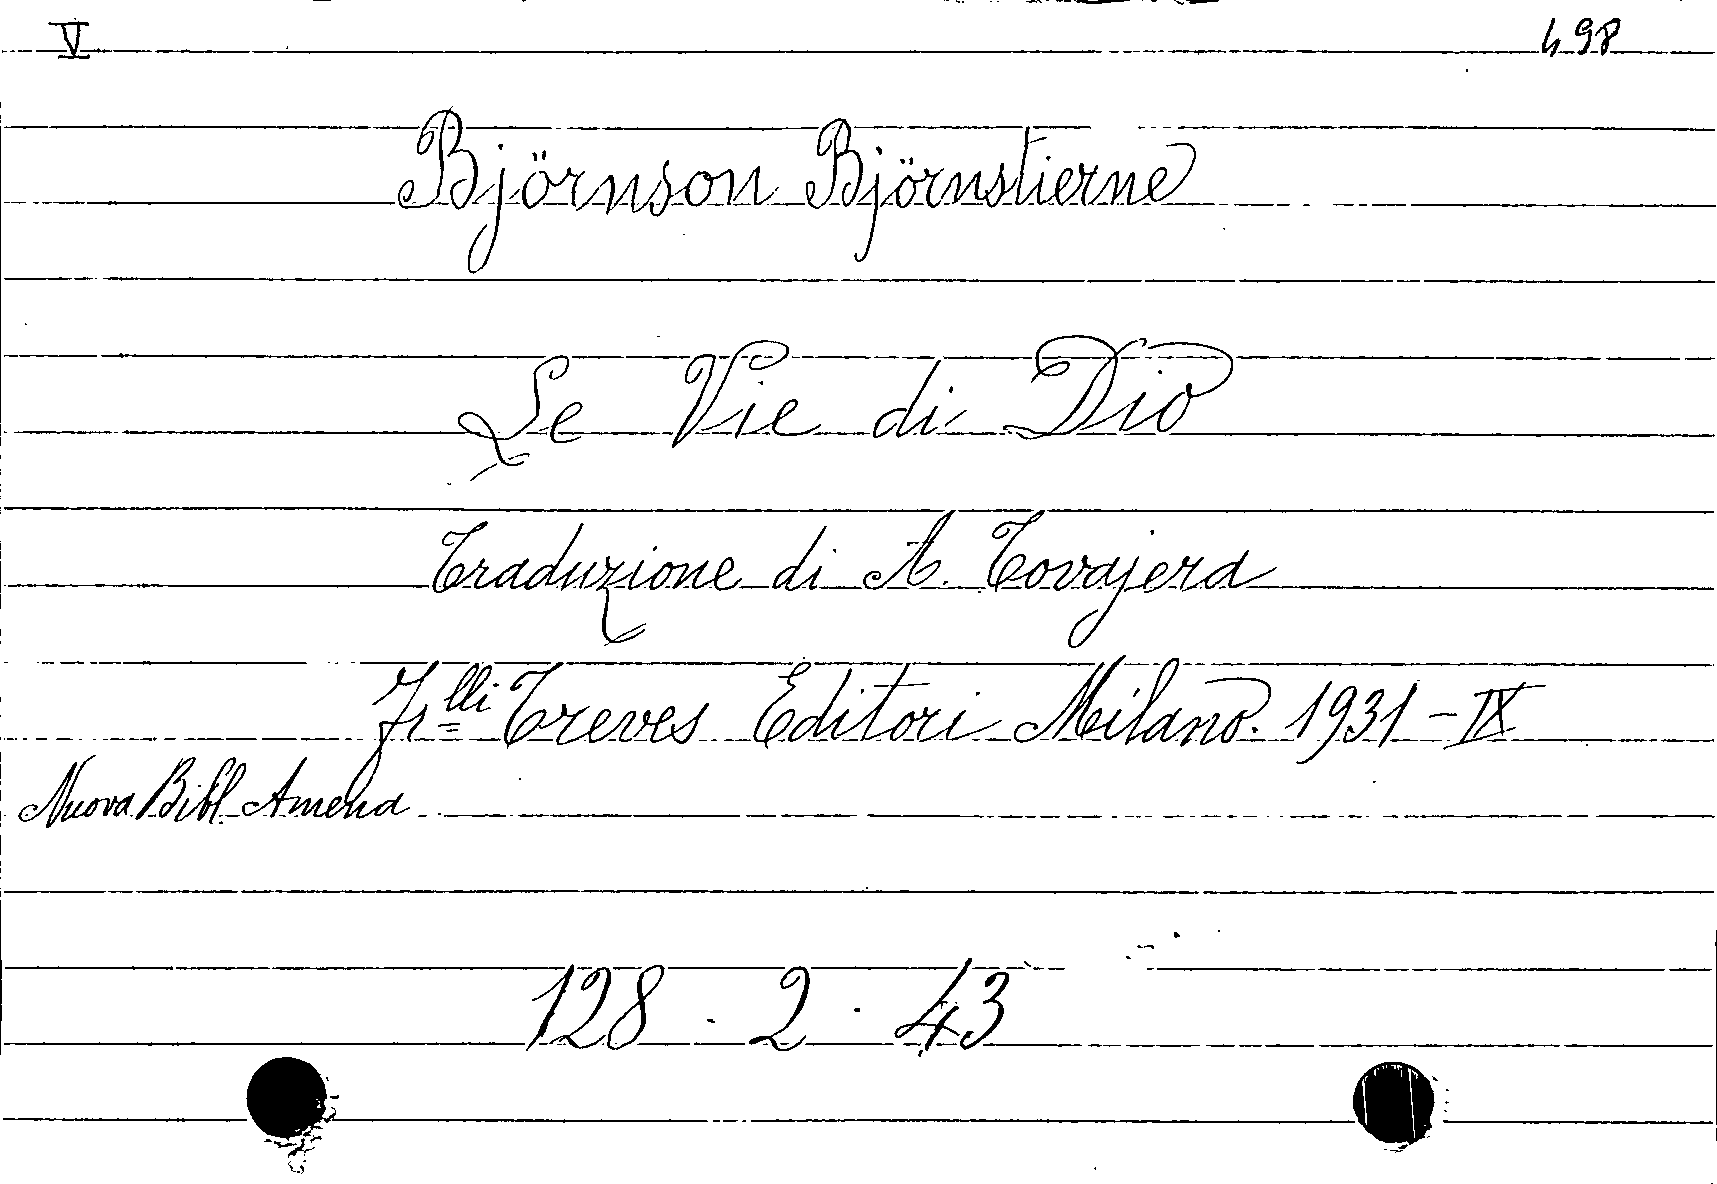 V 498
Björnson Björnstierne
Le Vie di Dio
Traduzione di A. Tovajera
F.lli Treves Editori Milano. 1931 - IX
Nuova Bibl. Amena
128 . 2 . 43